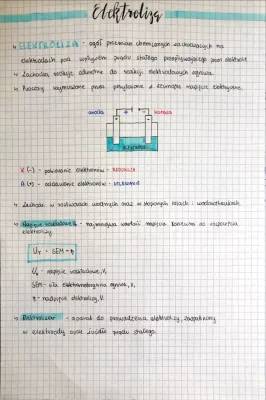 Elektroliza
ELEKTROLIZA - ogół przemian chemicznych zachodzących na
elektrodach pod wpływem prądu stałego przepływającego przez elektrolit
Zachodzą reakcje odwrotne do reakcji elektrodowych ogniwa.
Procesy wymuszone przez przyłożone z zewnątrz napięcie elektryczne.
anoda katoda
elektrolit
K (-) - pobieranie elektronów - REDUKCJA
A (+) - oddawanie elektronów - UTLENIANIE
Zachodzi w roztworach wodnych oraz w stopionych solach i wodorotlenkach.
Napięcie rozkładowe Ur - najmniejsza wartość napięcia konieczna do rozpoczęcia
elektrolizy.
Ur = SEM + η
Ur - napięcie rozkładowe, V,
SEM - siła elektromotoryczna ogniwa, V,
η - nadnapięcie elektrolizy, V.
Elektrolizer - aparat do prowadzenia elektrolizy, zaopatrzony
w elektrody oraz źródło prądu stałego.